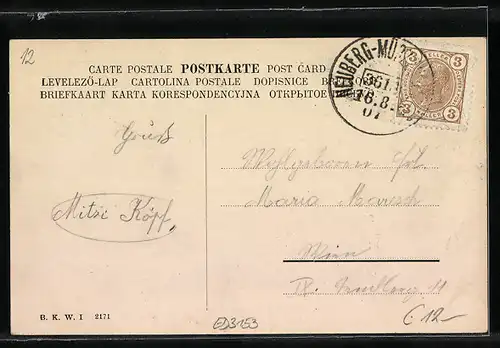 12
CARTE POSTALE POSTKARTE POST CARD
LEVELEZŐ-LAP CARTOLINA POSTALE DOPISNICE
BRIEFKAART KARTA KORESPONDENCYJNA ОТКРЫТОЕ
NEUBERG-MÜRZ
361
16.8.
07
3 3
Gruß
Mitzi Köpf
Wohlgeboren Frl.
Maria Maresch
Wien
IX. 11
B. K. W. I 2171
ED3153
C12-